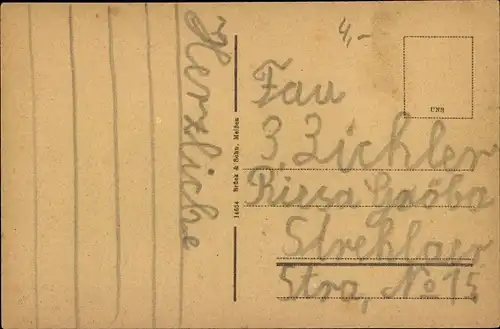 Herzliche
14654 Brück & Sohn, Meißen
4,-
BNU
Frau
3, Zichler
Riesa Gröba
Strehlaer
Stra, No 15